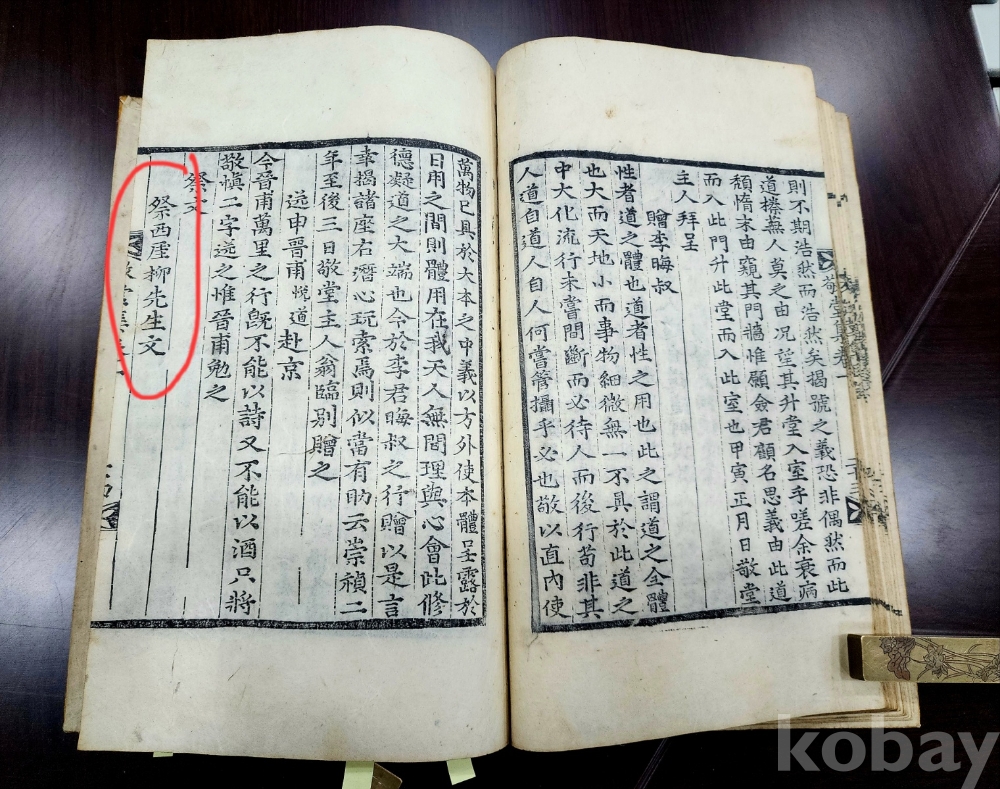 則不期浩然而浩然矣揭號之義恐非偶然而此
道榛蕪人莫之由况望其升堂入室乎嗟余衰病
頹惰末由窺其門牆惟願僉君顧名思義由此道
而入此門升此堂而入此室也甲寅正月日敬堂
主人拜呈
贈李晦叔
性者道之體也道者性之用也此之謂道之全體
也大而天地小而事物細微無一不具於此道之
中大化流行未嘗間斷而必待人而後行苟非其
人道自道人自人何嘗管攝乎必也敬以直內使
萬物已具於大本之中義以方外使本體呈露於
日用之間則體用在我天人無間理與心會此修
德凝道之大端也今於李君晦叔之行贈以是言
幸揭諸座右潛心玩索焉則似當有助云崇禎二
年至後三日敬堂主人翁臨別贈之
送申晋甫悅道赴京
今晉甫萬里之行旣不能以詩又不能以酒只將
敬愼二字送之惟晉甫勉之
祭文
祭西厓柳先生文
敬堂集卷
kobay